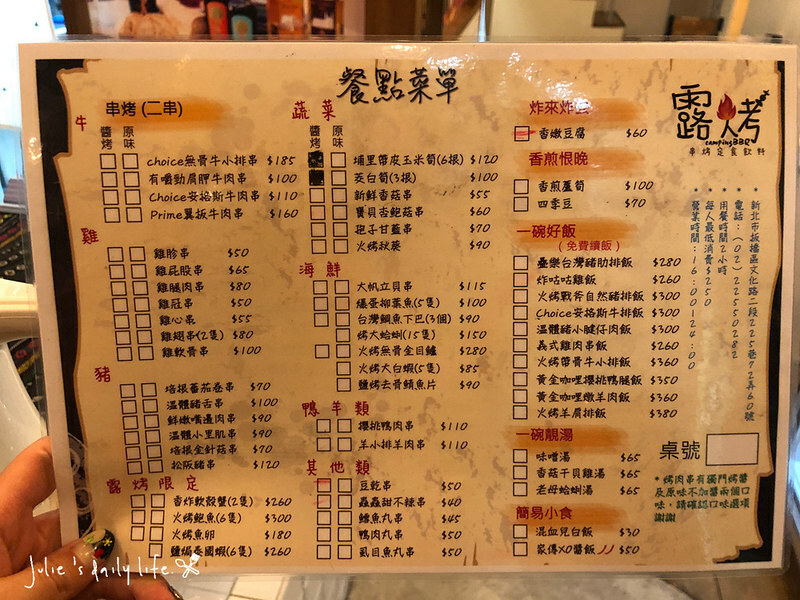 餐點菜單
露火烤
camping BBQ
串烤定食飲料
串烤 (二串)
牛
醬烤 原味
choice無骨牛小排串 $185
有嚼勁肩胛牛肉串 $100
Choice安格斯牛肉串 $110
Prime翼板牛肉串 $160
雞
雞胗串 $50
雞屁股串 $65
雞腿肉串 $80
雞冠串 $50
雞心串 $55
雞翅串(2隻) $80
雞軟骨串 $100
豬
培根蕃茄卷串 $70
溫體豬舌串 $100
鮮嫩嘴邊肉串 $90
溫體小里肌串 $90
培根金針菇串 $70
松阪豬串 $120
露烤限定
香炸軟殼蟹(2隻) $260
火烤鮑魚(6隻) $300
火烤魚卵 $180
鹽焗泰國蝦(6隻) $260
蔬菜
醬烤 原味
埔里帶皮玉米筍(6根) $120
茭白筍(3根) $100
新鮮香菇串 $55
寶貝杏鮑菇串 $60
孢子甘藍串 $70
火烤秋葵 $90
海鮮
大帆立貝串 $115
爆蛋柳葉魚(5隻) $100
台灣鯛魚下巴(3個) $90
烤大蛤蜊(15隻) $150
火烤無骨金目鱸 $280
火烤大白蝦(5隻) $85
鹽烤去骨鯖魚片 $90
鴨羊類
櫻桃鴨肉串 $110
羊小排肉串 $110
其他類
豆乾串 $50
蟲蟲甜不辣串 $40
鱈魚丸串 $45
鴨肉丸串 $50
虱目魚丸串 $50
炸來炸去
香嫩豆腐 $60
香煎恨晚
香煎蘆筍 $100
四季豆 $70
一碗好飯
(免費續飯)
疊樂台灣豬肋排飯 $280
炸咕咕雞飯 $260
火烤戰斧自然豬排飯 $300
Choice安格斯牛排飯 $300
溫體豬小腱仔肉飯 $300
義式雞肉串飯 $260
火烤帶骨牛小排飯 $360
黃金咖哩櫻桃鴨腿飯 $350
黃金咖哩嫩羊肉飯 $360
火烤羊肩排飯 $380
一碗靚湯
味噌湯 $65
香菇干貝雞湯 $65
老母蛤蜊湯 $65
簡易小食
混血兒白飯 $30
家傳XO醬飯 $50
* 新北市板橋區文化路二段225巷72弄60號
* 電話:(02)22550282
* 用餐時間2小時
* 每人最低消費$250
* 營業時間:16:00~24:00
桌號
* 烤肉串有獨門烤醬
及原味不加醬兩個口
味,請確認口味選項
謝謝
Julie's daily life.